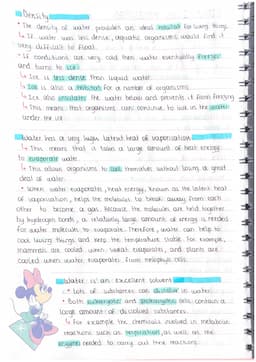 Density
• The density of water provides an ideal habitat for living things.
↳ If water was less dense, aquatic organisms would find it
very difficult to float.
• If conditions are very cold then water eventually freezes
and turns to ice.
↳ Ice is less dense than liquid water.
↳ Ice is also a habitat for a number of organisms.
↳ Ice also insulates the water below and prevents it from freezing.
↳ This means that organisms can continue to live in the water
under the ice.
Water has a very high latent heat of vaporisation
• This means that it takes a large amount of heat energy
to evaporate water.
• This allows organisms to cool themselves without losing a great
deal of water.
• When water evaporates, heat energy, known as the latent heat
of vaporisation, helps the molecules to break away from each
other to become a gas. Because the molecules are held together
by hydrogen bonds, a relatively large amount of energy is needed
for water molecules to evaporate. Therefore, water can help to
cool living things and keep the temperature stable. For example,
mammals are cooled when sweat evaporates, and plants are
cooled when water evaporates from mesophyll cells.
Water is an excellent solvent
• Lots of substances can dissolve in water.
• Both eukaryotic and prokaryotic cells contain a
large amount of dissolved substances.
↳ For example the chemicals involved in metabolic
reactions such as respiration, as well as the
enzymes needed to carry out these reactions.